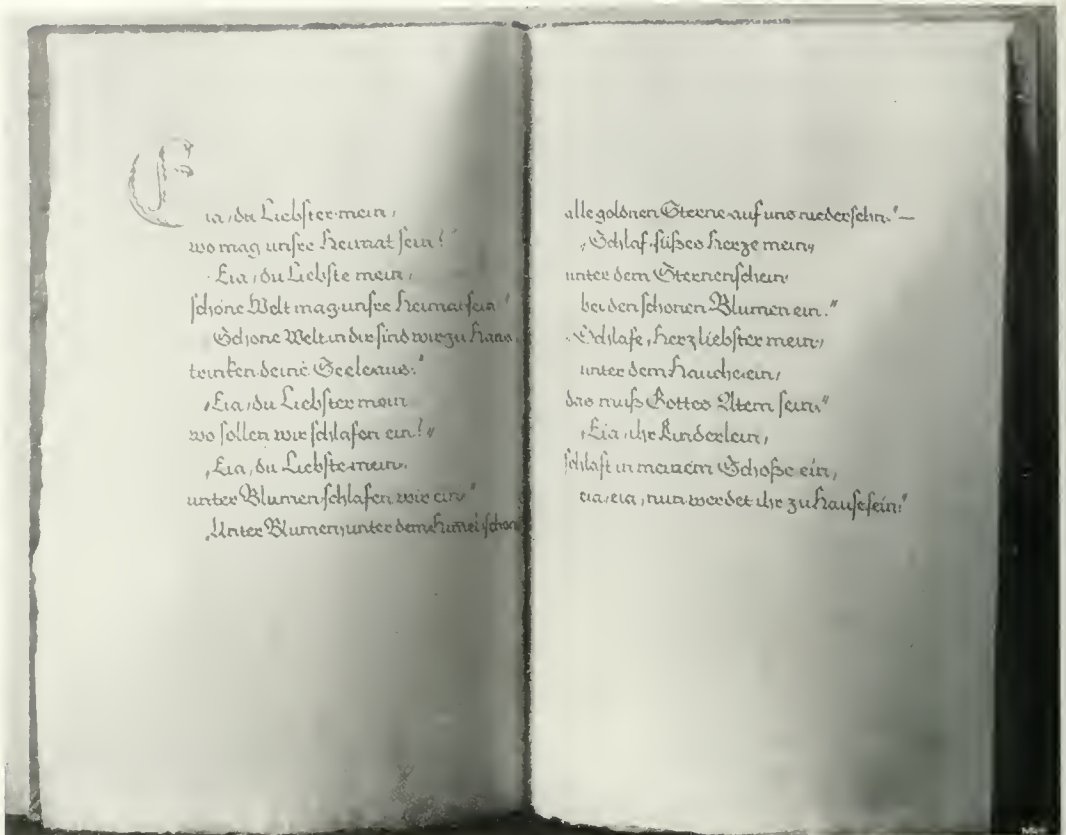 Eia, du Liebster mein,
wo mag unsre Heimat sein?"
Eia, du Liebste mein,
schöne Welt mag unsre Heimat sein."
Schöne Welt in dir sind wir zu Haus
trinken deine Seele aus."
„Eia, du Liebster mein
wo sollen wir schlafen ein?"
„Eia, du Liebste mein,
unter Blumen schlafen wir ein"
„Unter Blumen, unter dem Himel schon
alle goldnen Sterne auf uns niedersehn." —
„Schlaf, süßes Herze mein,
unter dem Sternenschein
bei den schönen Blumen ein."
„Schlafe, Herzliebster mein,
unter dem Hauche ein,
das muß Gottes Atem sein."
„Eia, ihr Kinderlein,
schlaft in meinem Schoße ein,
eia, eia, nun werdet ihr zu Hause sein."